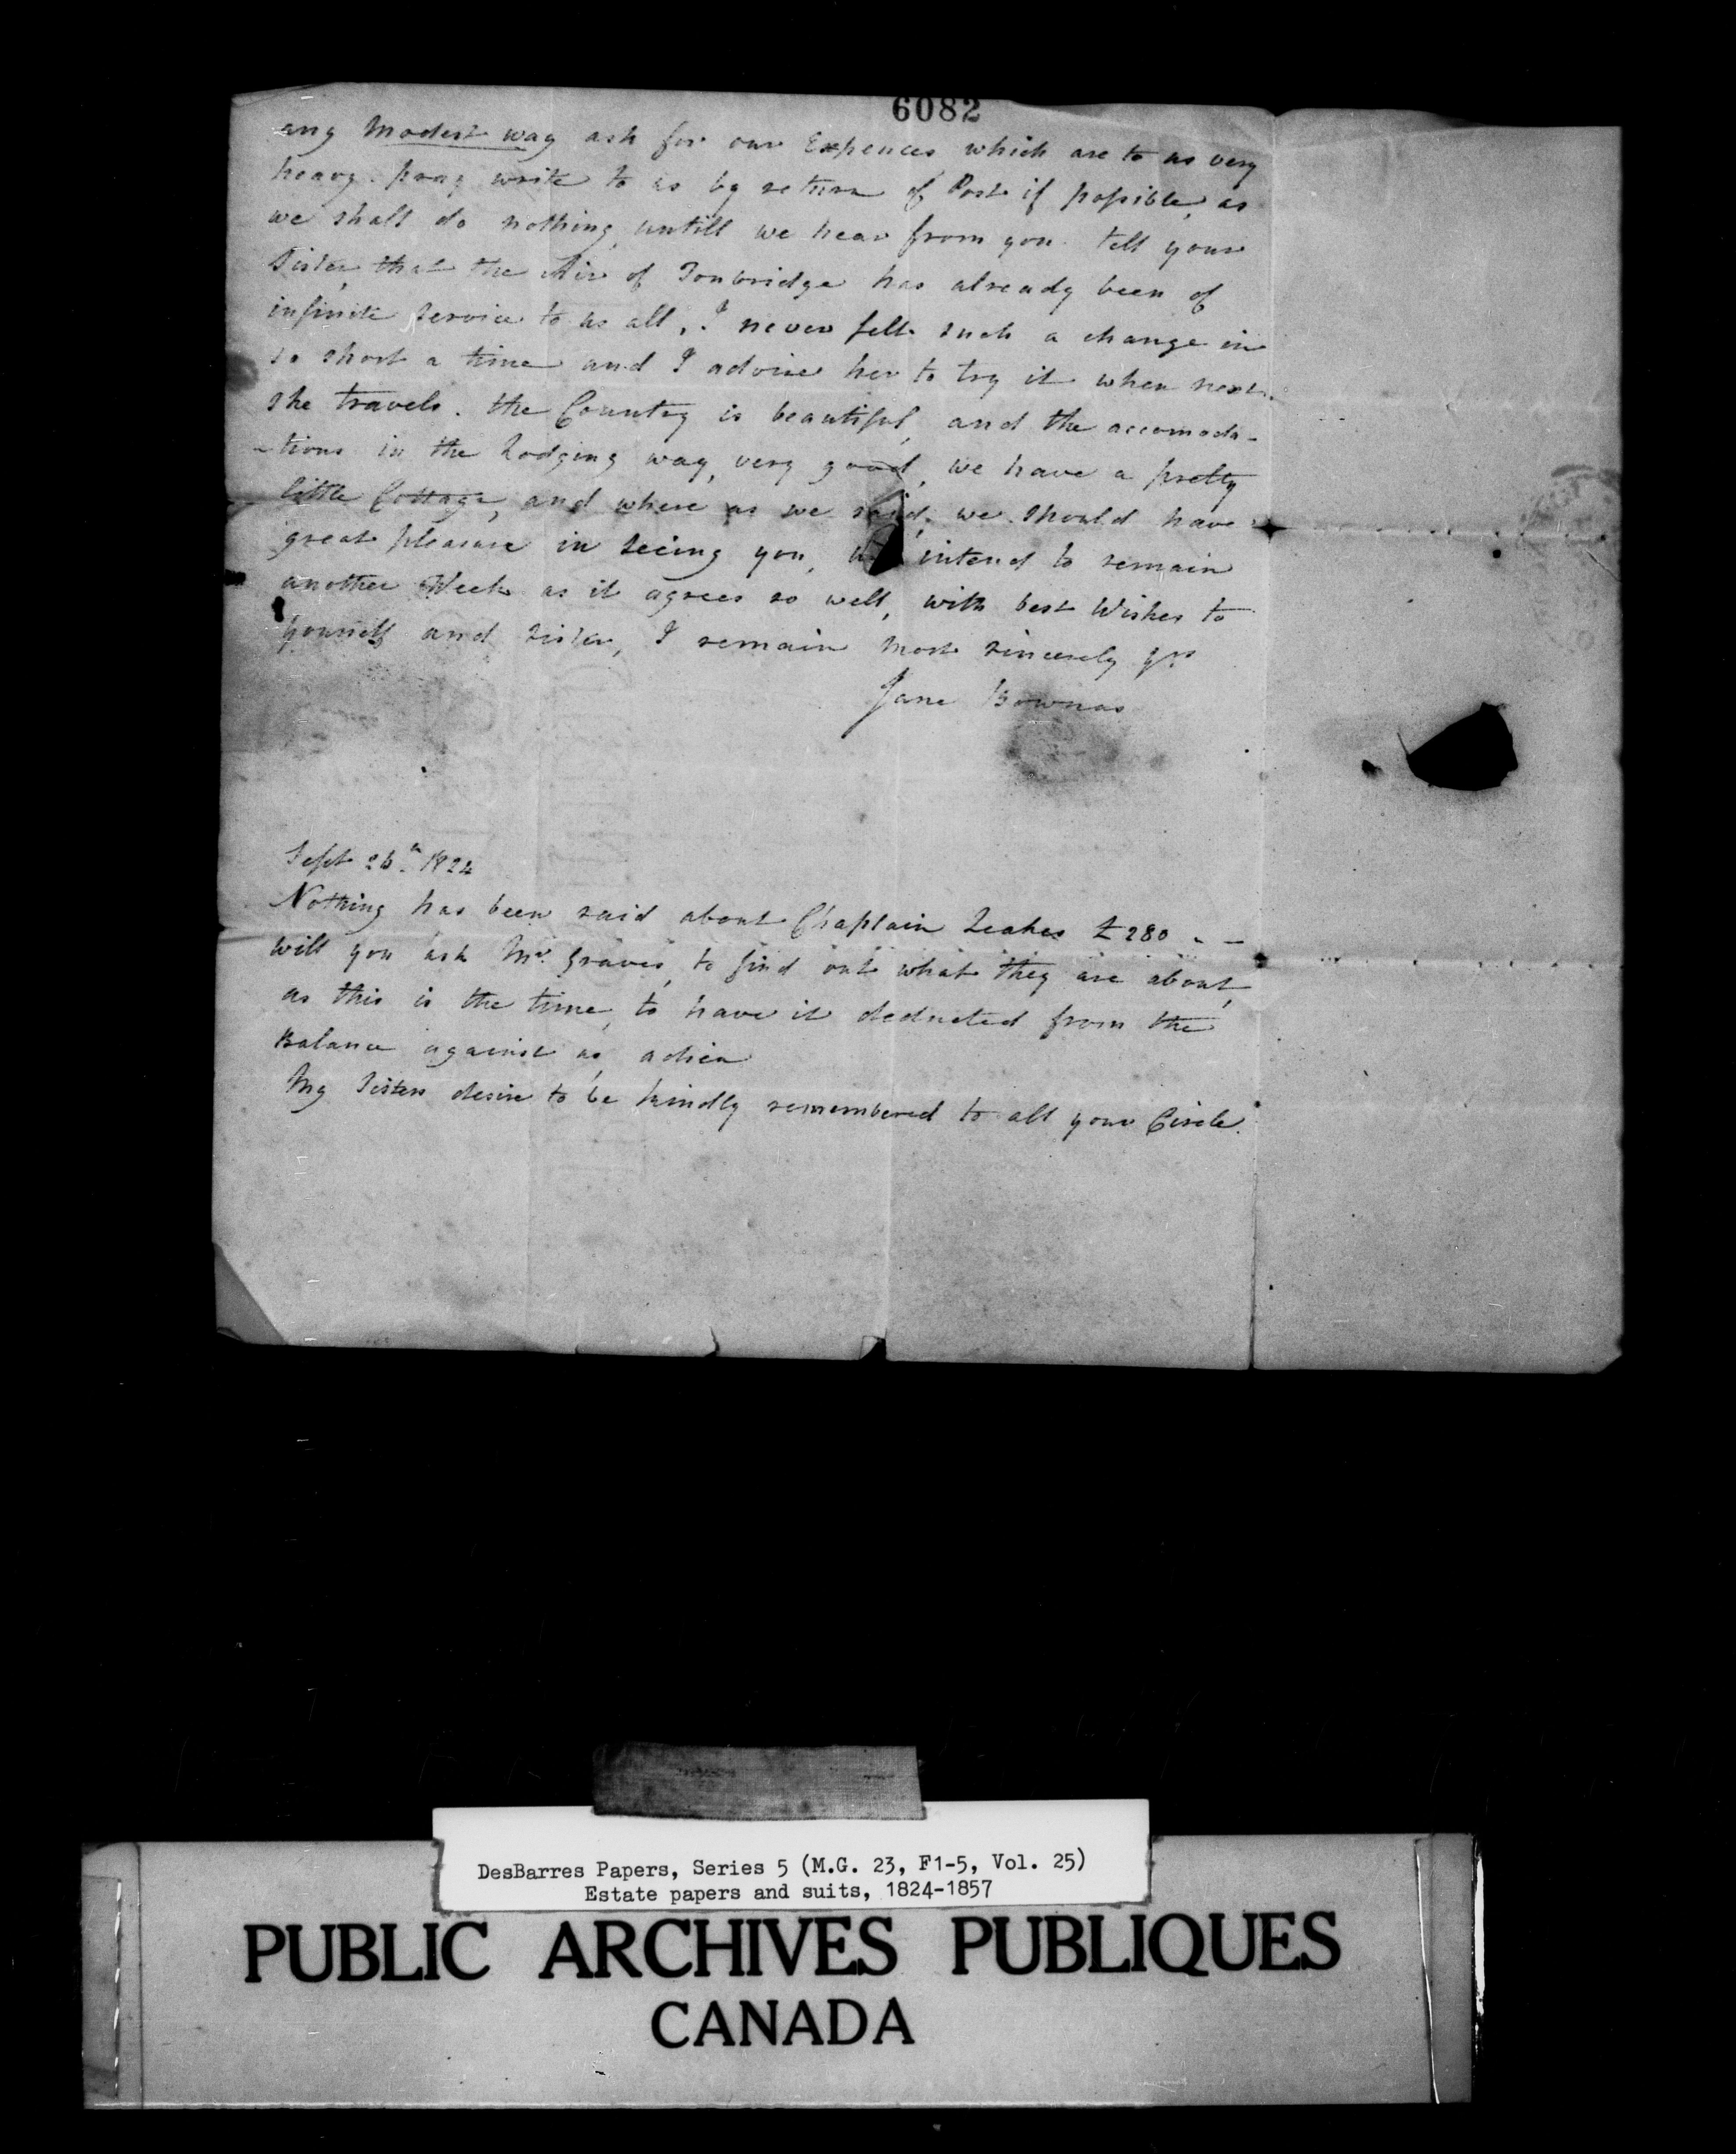 6082
any Modest way ask for our Expences which are to us very
heavy. pray write to us by return of Post if possible, as
we shall do nothing, untill we hear from you. tell your
Sister, that the Air of Tonbridge has already been of
infinite service to us all, I never felt such a change in
so short a time and I advise her to try it when next
she travels. the Country is beautiful, and the accomoda-
-tions in the Lodging way, very good, we have a pretty
little Cottage, and where as we said, we should have
great pleasure in seeing you, we intend to remain
another Week as it agrees so well, with best Wishes to
yourself and Sister, I remain most sincerely yrs
Jane Bownas
Sept 26th 1824
Nothing has been said about Chaplain Leakes £280 - -
will you ask Mr. Graves, to find out what they are about,
as this is the time, to have it deducted from the
Balance against us, adieu
My Sisters desire to be kindly remembered to all your Circle.
DesBarres Papers, Series 5 (M.G. 23, F1-5, Vol. 25)
Estate papers and suits, 1824-1857
PUBLIC ARCHIVES PUBLIQUES
CANADA